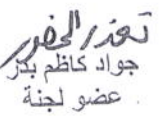 تعذر الحضور
جواد كاظم بدر
عضو لجنة